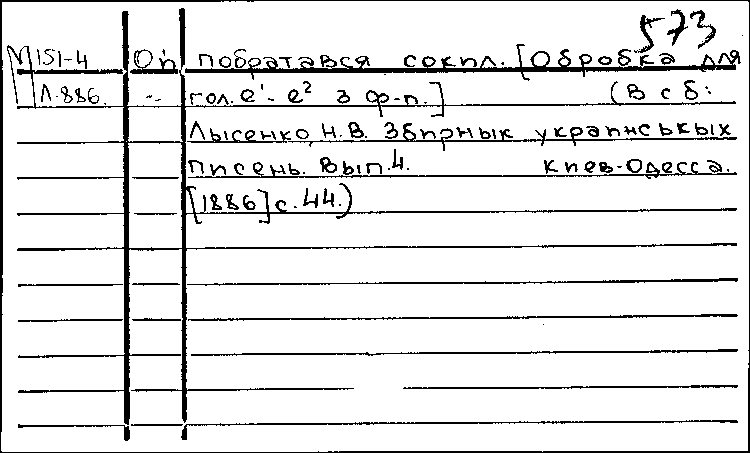 573
М 151-4 Ой побратався сокіл. [Обробка для
Л.886. -- гол. e¹-e² з ф-п.] (В сб:
Лысенко, Н.В. Збирнык украинськых
писень. Вып.4. Киев-Одесса.
[1886] с.44.)